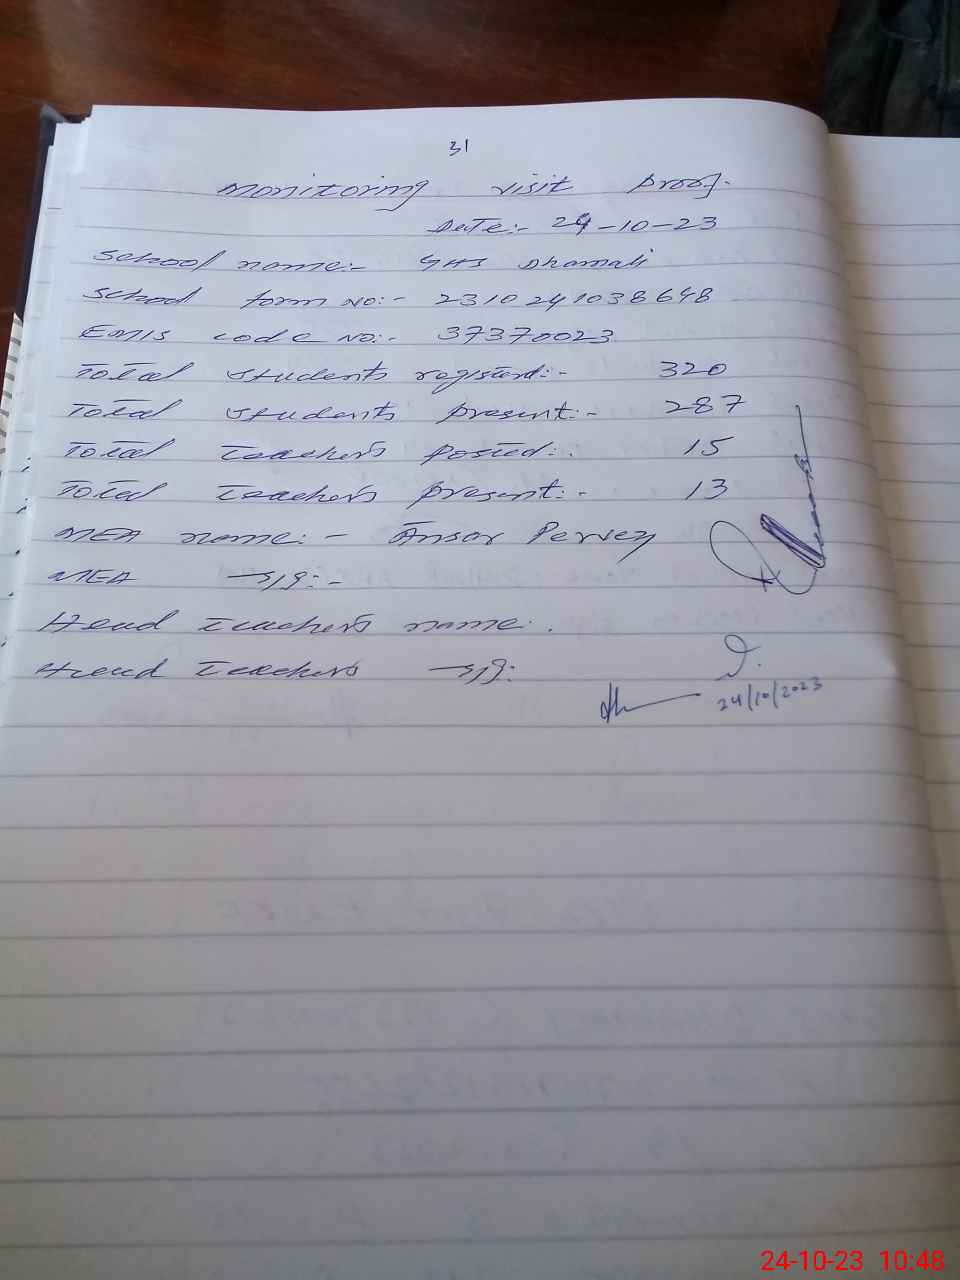 31
monitoring visit proof.
Date:- 24-10-23
School name:- GHS Dhamali
School form No:- 2310241038648
EMIS code No:- 37370023
Total students registerd:- 320
Total students present:- 287
Total teachers posted:- 15
Total teachers present:- 13
MEA name:- Ansar Pervez
MEA sig:-
Head teachers name:
Head teachers sig:
24/10/2023
24-10-23 10:48